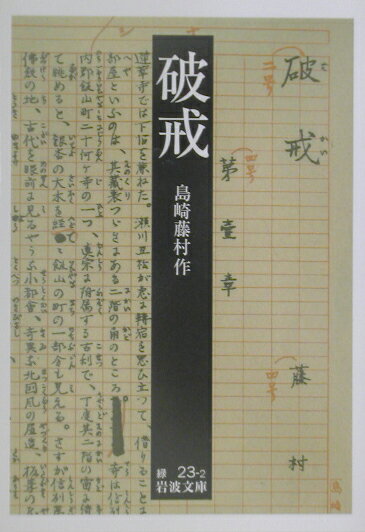 破戒
島崎藤村作
緑 23-2
岩波文庫
破戒
第壹章
藤村
二号
四号
四号
島崎
蓮華寺では下宿を兼ねた。瀬川丑松が急に轉宿を思ひ立つて、借りることに
部屋といふのは、其藏裏つゞきにある二階の角のところ。寺は信州
内郡飯山町二十何ヶ寺の一つ、眞宗に附屬する古刹で、丁度其二階の窓に倚
て眺めると、銀杏の大木を經てゝ飯山の町の一部分も見える。さすが信州第
佛敎の地、古代を眼前に見るやうな小都會、奇異な北國風の屋造、板葺の